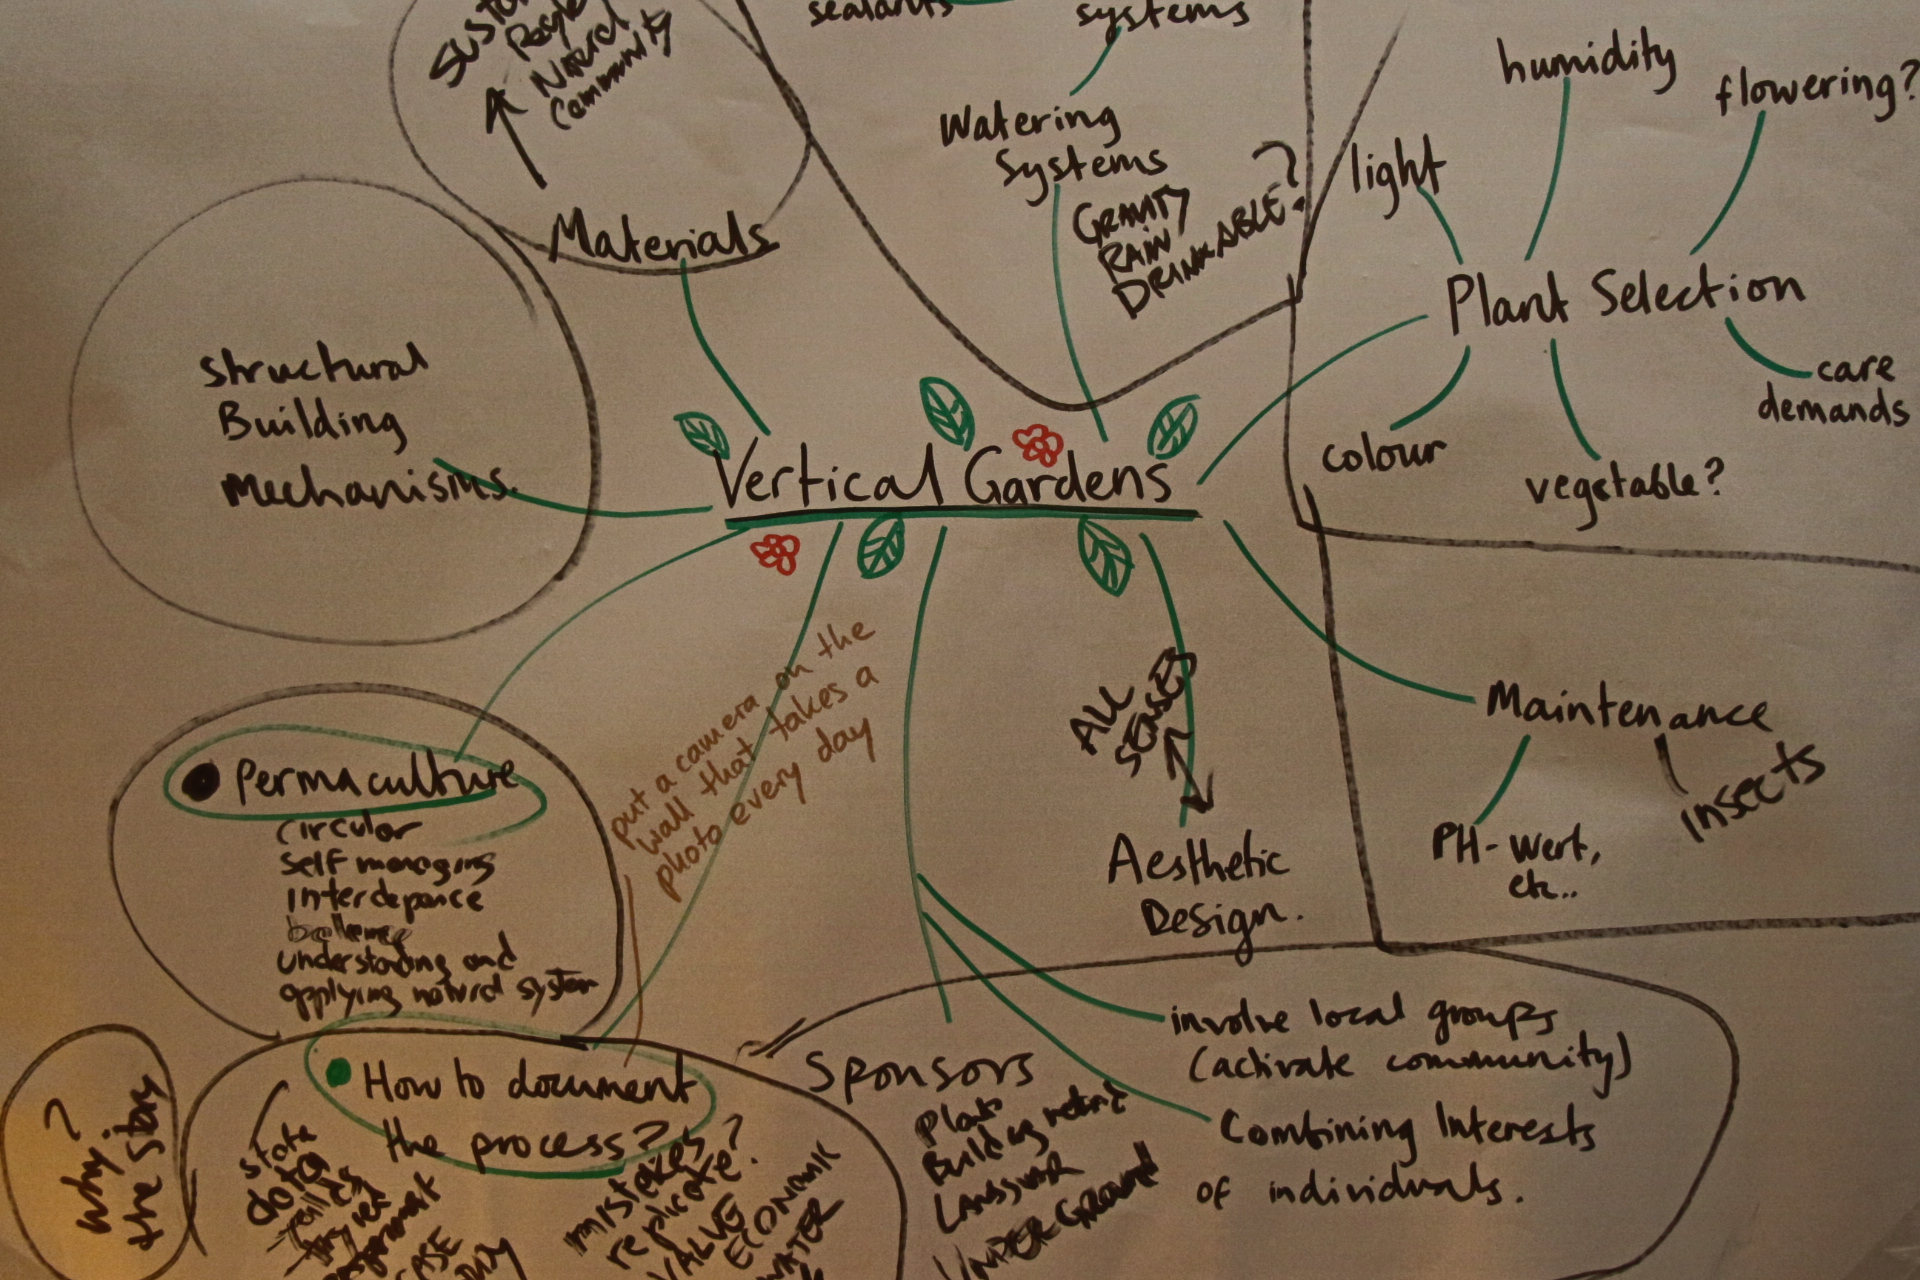 sealants
systems
People
Natural
Community
Materials
Watering
Systems
GRAVITY
RAIN
DRINKABLE?
humidity
flowering?
light
Plant Selection
care
demands
colour
vegetable?
Structural
Building
Mechanisms.
Vertical Gardens
Permaculture
circular
self managing
Interdepance
understanding and
applying natural system
put a camera on the
wall that takes a
photo every day
ALL
SENSES
Aesthetic
Design.
Maintenance
PH-Wert,
etc..
insects
why?
the story
How to document
the process?
data
mistakes
replicate?
VALUE
ECONOMIC
WATER
Sponsors
Plants
UNDERGROUND
involve local groups
(activate community)
Combining Interests
of individuals.